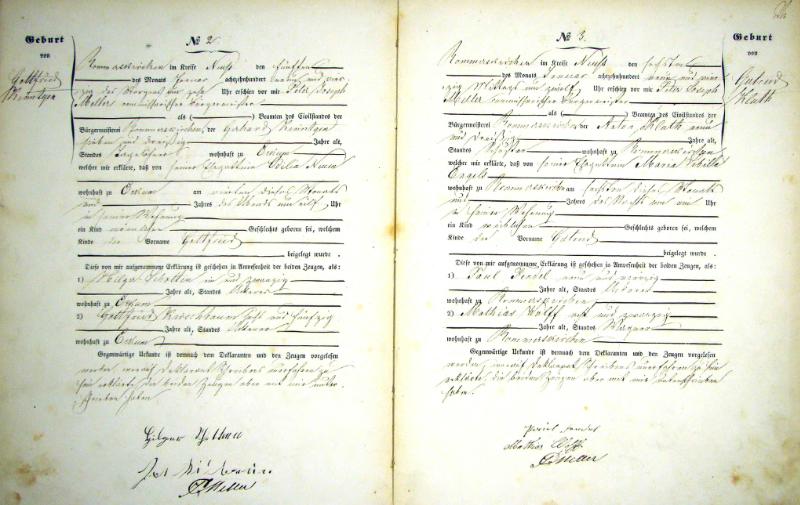 Geburt
von
Gottfried
№ 2.
Rommerskirchen im Kreise Neuß den fünften
des Monats Januar achtzehnhundert neun und vier-
zig des Morgens um zehn Uhr erschien vor mir Peter Joseph
Meller commissarischer Bürgermeister
als ( ) Beamten des Civilstandes der
Bürgermeisterei Rommerskirchen, der Gerhard
sieben und dreißig Jahre alt,
Standes Tagelöhner wohnhaft zu Oekum
welcher mir erklärte, daß von seiner Ehegattinn
wohnhaft zu Oekum am vierten dieses Monats
und Jahres des Abends um elf Uhr
in seiner Wohnung
ein Kind männlichen Geschlechts geboren sei, welchem
Kinde der Vorname Gottfried
beigelegt wurde.
Diese von mir aufgenommene Erklärung ist geschehen in Anwesenheit der beiden Zeugen, als:
1) Hilger
Jahre alt, Standes
wohnhaft zu Oekum
2) Gottfried Kirschbaum acht und fünfzig
Jahre alt, Standes
wohnhaft zu Oekum
Gegenwärtige Urkunde ist demnach dem Deklaranten und den Zeugen vorgelesen
worden, worauf Deklarant Schreibens unerfahren zu
sein erklärte, die beiden Zeugen aber mit mir unter-
schrieben haben.
Hilger
Meller
Geburt
von
№ 3.
Rommerskirchen im Kreise Neuß den sechsten
des Monats Januar achtzehnhundert neun und vier-
zig Mittags um zwölf Uhr erschien vor mir Peter Joseph
Meller commissarischer Bürgermeister
als ( ) Beamten des Civilstandes der
Bürgermeisterei Rommerskirchen der Anton Klath neun
und dreißig Jahre alt,
Standes wohnhaft zu Rommerskirchen
welcher mir erklärte, daß von seiner Ehegattinn Maria Sibilla
Engels
wohnhaft zu Rommerskirchen am sechsten dieses Monats
und Jahres des Nachts um ein Uhr
in seiner Wohnung
ein Kind weiblichen Geschlechts geboren sei, welchem
Kinde der Vorname
beigelegt wurde.
Diese von mir aufgenommene Erklärung ist geschehen in Anwesenheit der beiden Zeugen, als:
1) Paul
Jahre alt, Standes
wohnhaft zu Rommerskirchen
2) Mathias Wolff acht und zwanzig
Jahre alt, Standes Wagner
wohnhaft zu Rommerskirchen
Gegenwärtige Urkunde ist demnach dem Deklaranten und den Zeugen vorgelesen
worden, worauf Deklarant Schreibens unerfahren zu sein
erklärte, die beiden Zeugen aber mit mir unterschrieben
haben.
Mathias Wolff
Meller